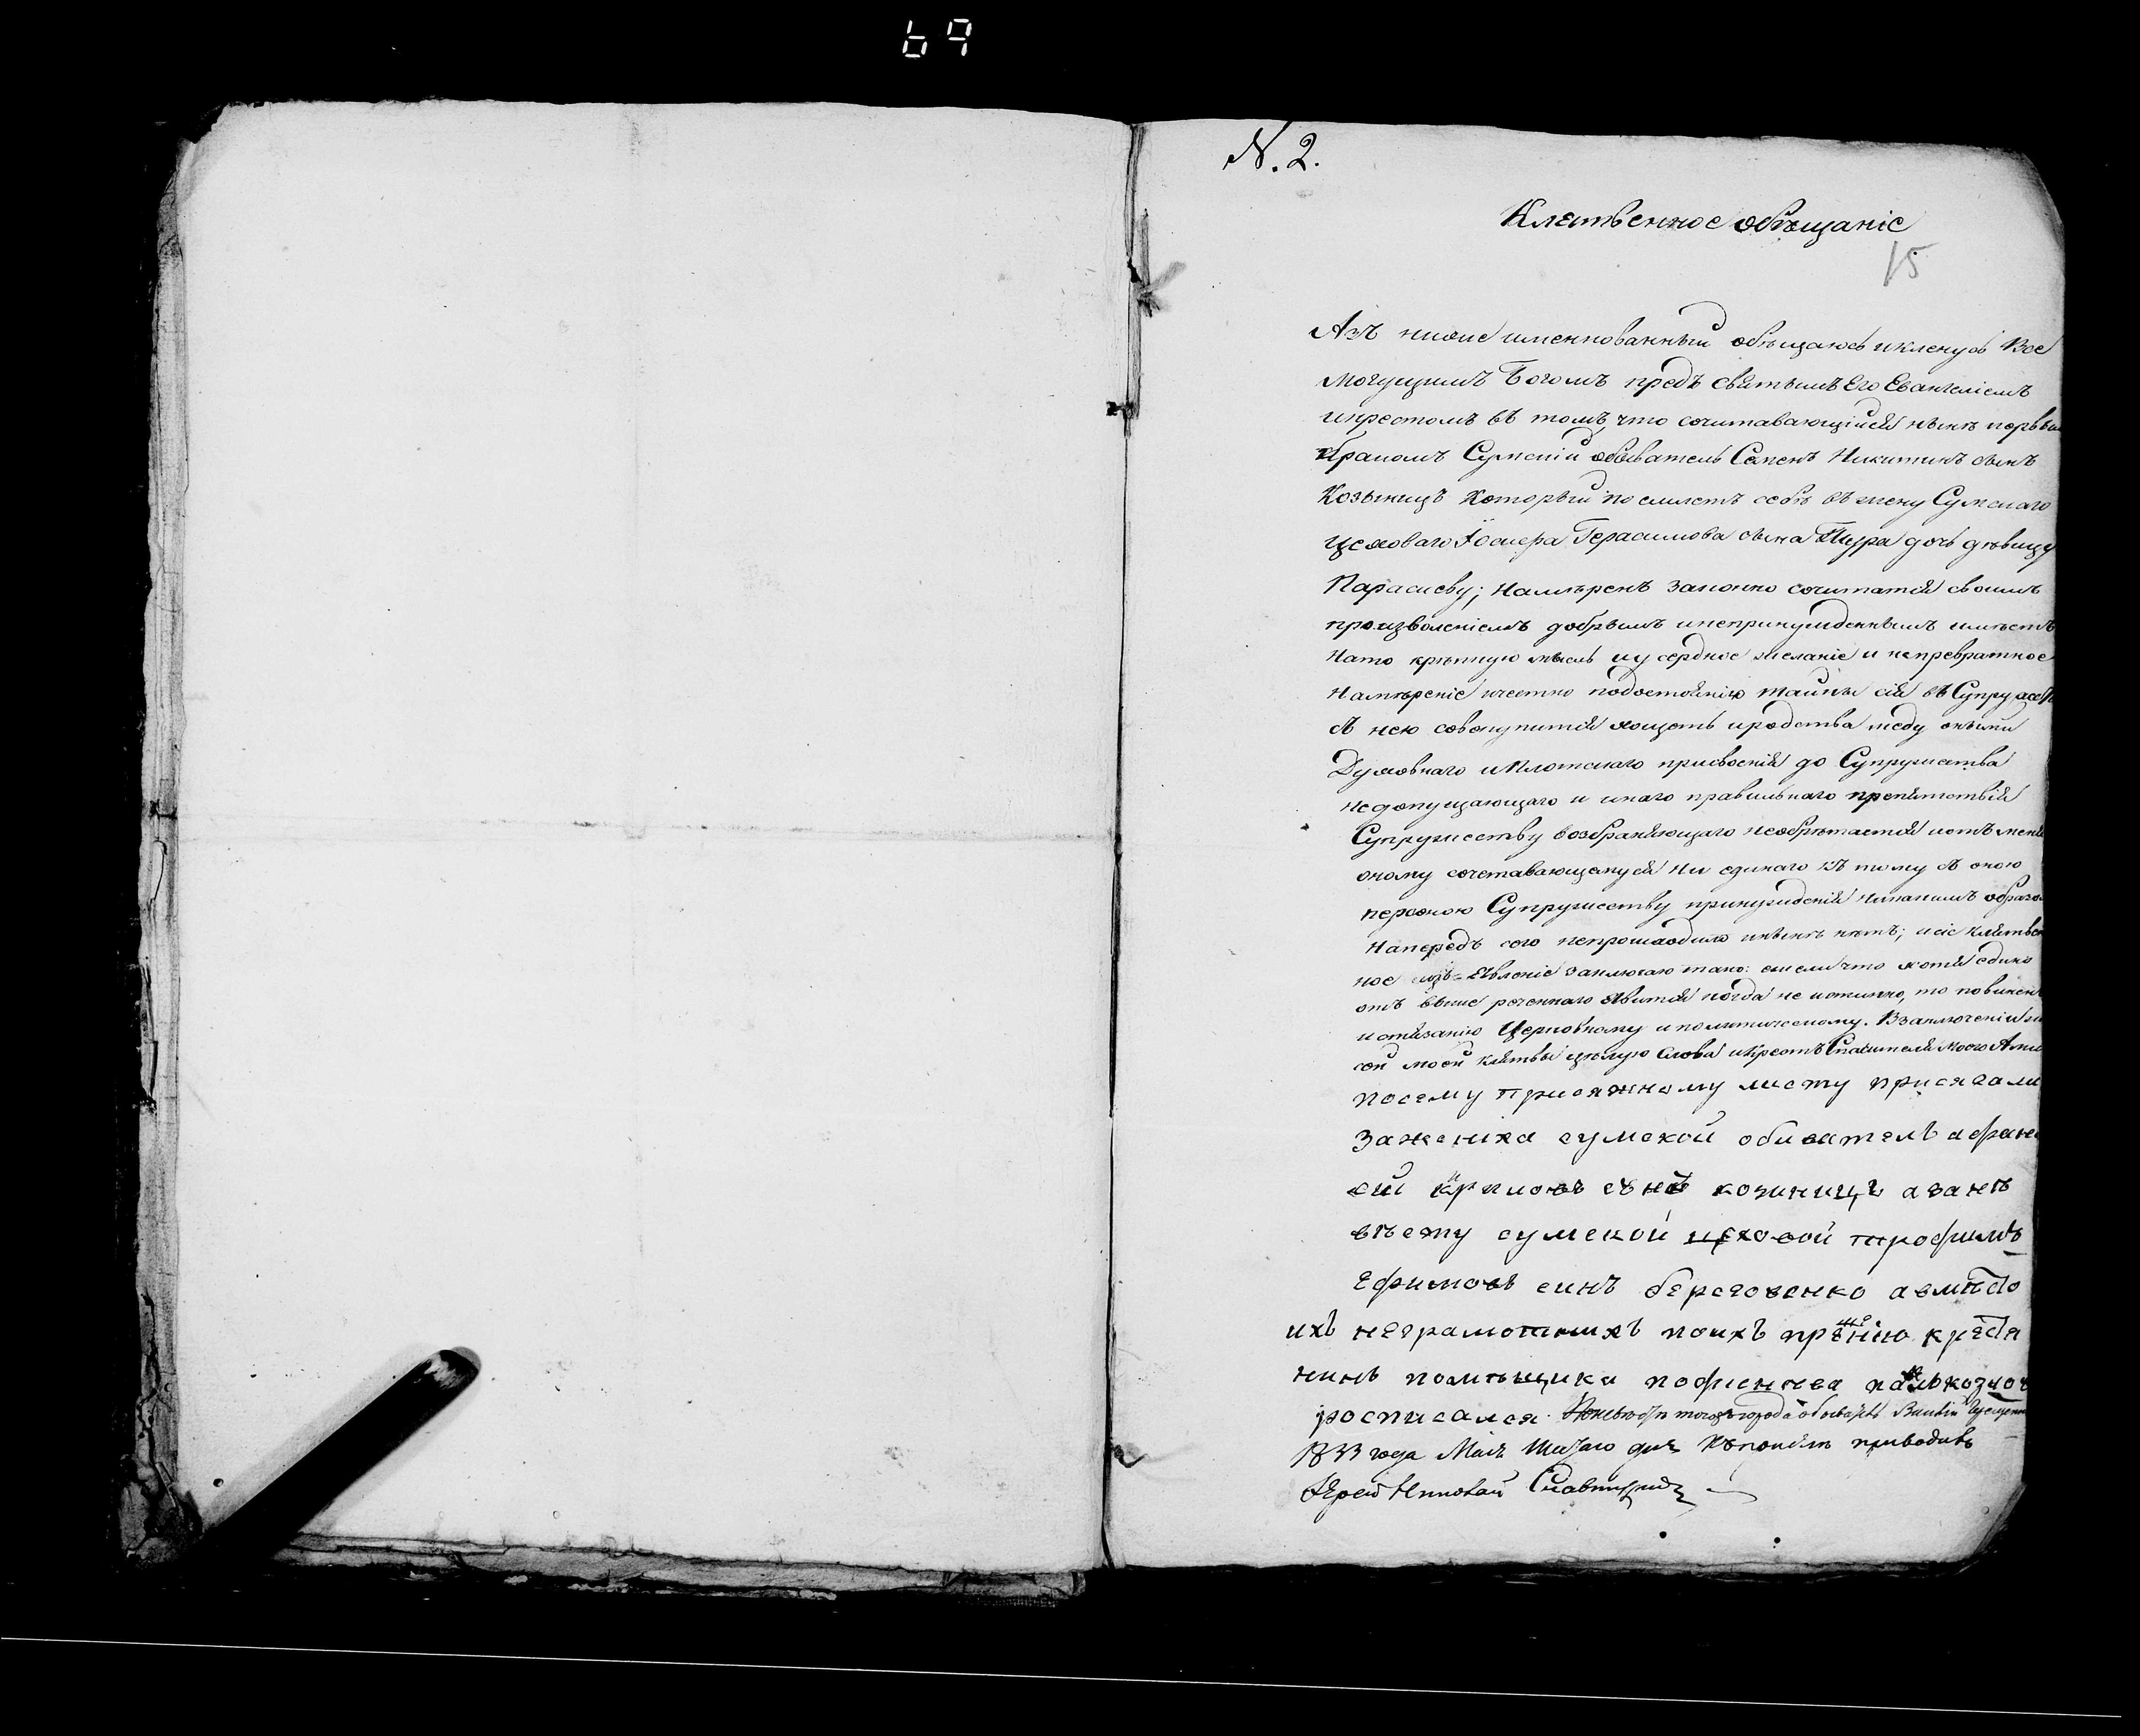 69
N. 2.
Клятвенное обѣщаніе
15
Азъ ниже именнованный обѣщаюсь и кленусь Все
могущимъ Богомъ предъ святымъ Его Евангеліемъ
и крестомъ въ томъ, что сочитавающійся нынѣ первымъ
бракомъ Сумскій обыватель Семенъ Никитинъ сынъ
Козыницъ который поемлетъ себѣ въ жену Сумскаго
цеховаго Герасимова сына дочь дѣвицу
Параскеву; намѣренъ законно сочитатся своимъ
произволеніемъ добрымъ и непринужденнымъ имѣетъ
на то крѣпкую мысль и усердное желаніе и непревратное
намѣреніе и честно по достоянію тайны сія въ Супружество
съ нею совокупится хощетъ и родства межу оными
Духовнаго и Плотскаго присвоенія до Супружества
недопущающаго и инаго правильнаго препятствія
Супружеству возбраняющаго необрѣтается и отъ меня
оному сочетавающемуся ни единаго къ тому съ оною
персоною Супружеству принужденія никакимъ образомъ
напередъ сего непроисходило и нынѣ нѣтъ; и сіе клятвен
ное изъ=явленіе заключаю тако: ежели что хотя едино
отъ выше реченнаго явится когда не истинно, то повиненъ
истязанію Церковному и политическому. В заключеніи же
сей моей клятвы цѣлую слова и Крестъ Спасителя моего Аминь
посему присяжному листу присягали
зажениха сумской обиватель афана
сій сынъ козиницъ азанѣ
вѣсту сумской цеховой трофимъ
Ефимовъ синъ береговенко авмѣсто
ихъ неграмотнихъ поихъ прошенію кресtя
нинъ помѣщика
росписался
1833 года Маія дня къ присягѣ приводилъ
Іерей Николай